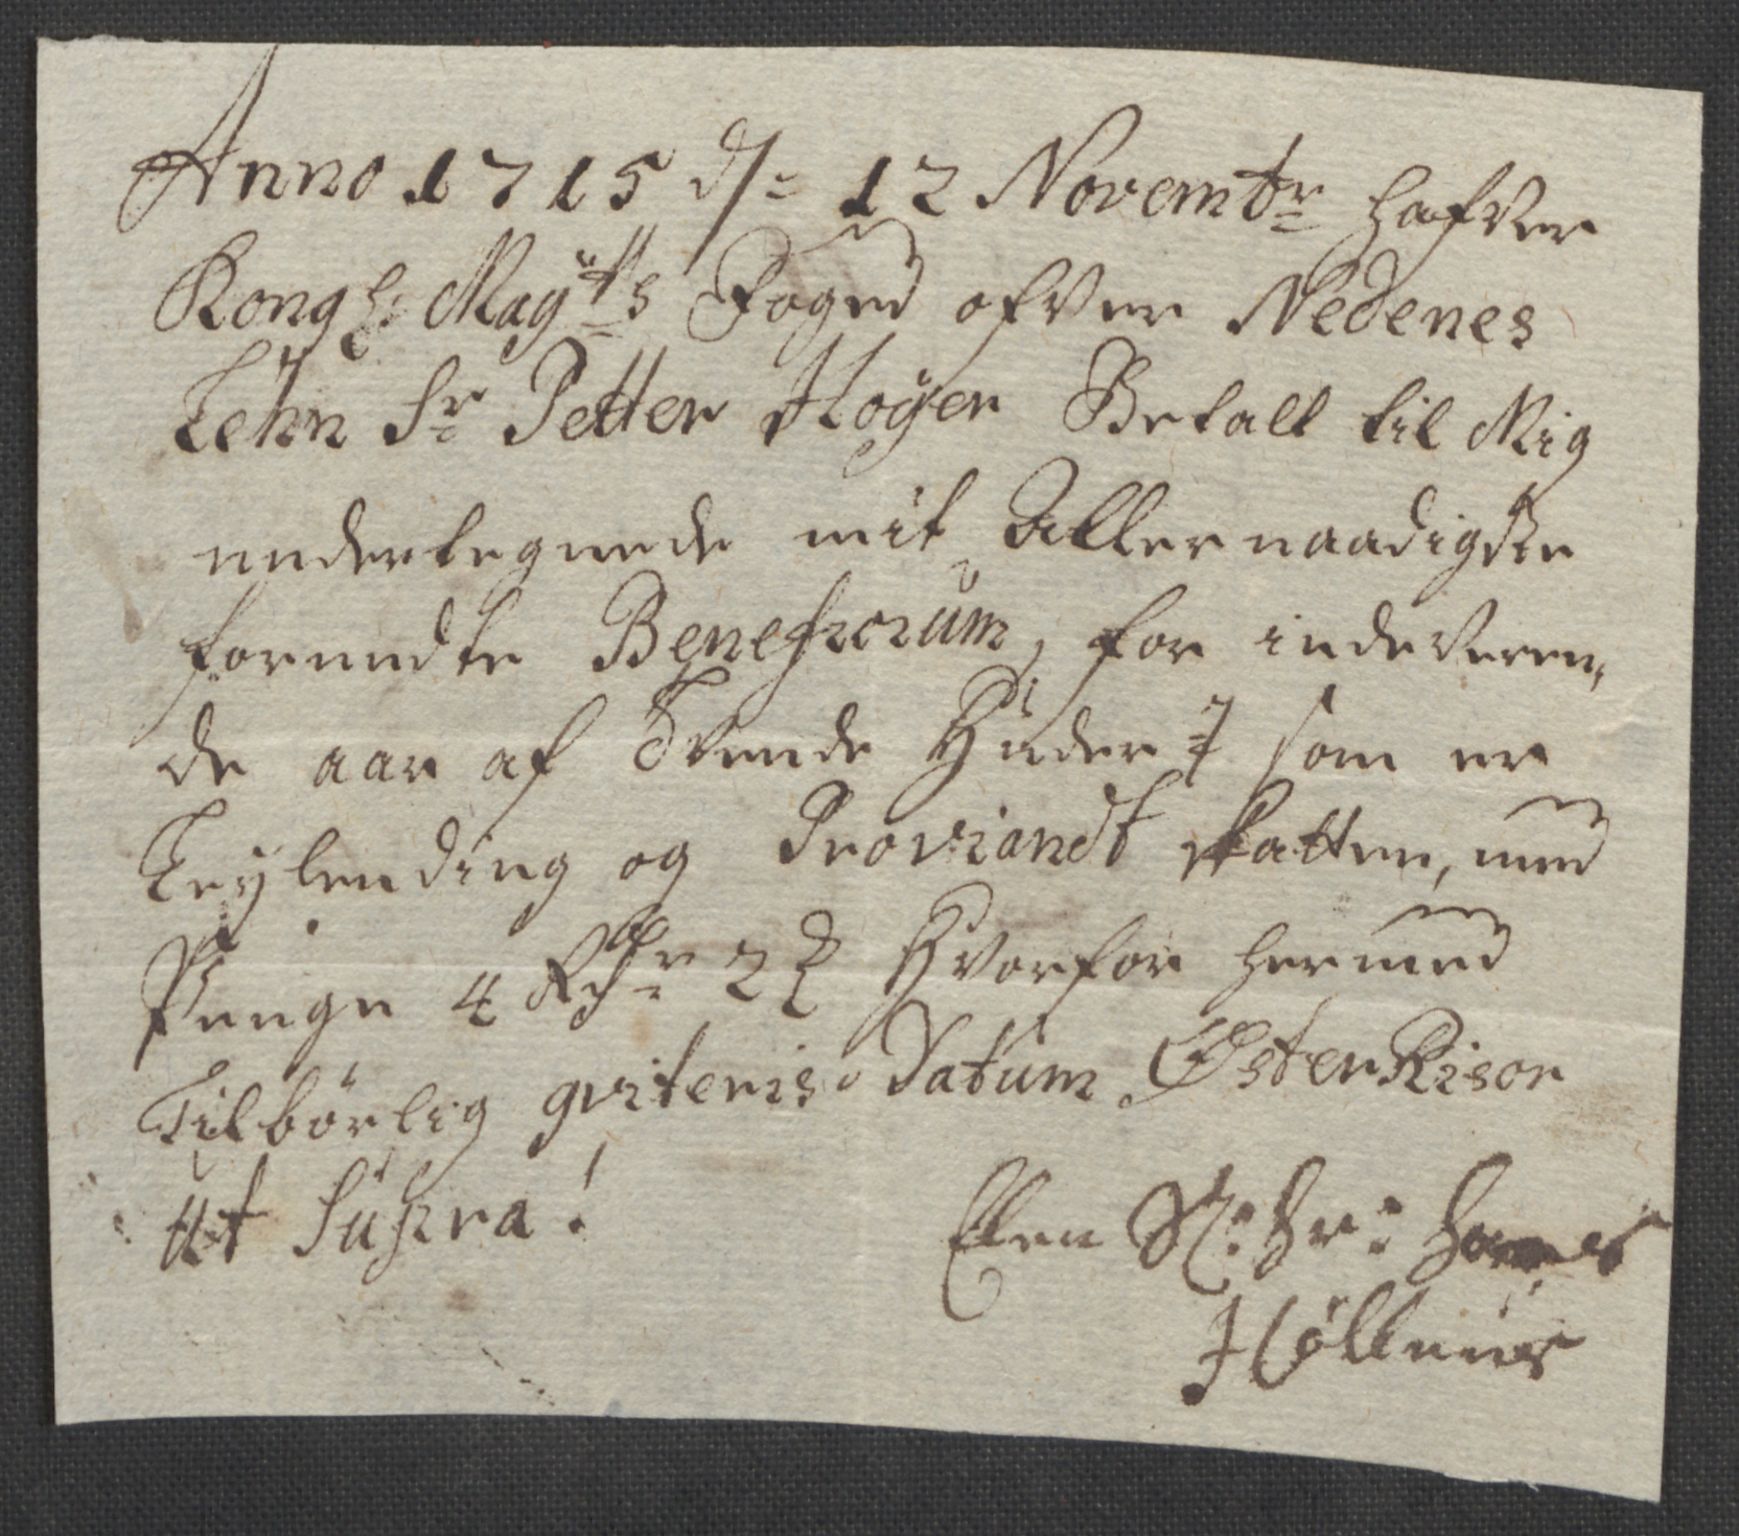 Anno 1715 d/: 12 Novembr hafver
Kongl: Mayttz Foged ofver Nedenes
Lehn Sr Petter Høyer Betalt til Mig
undertegnede mit Allernaadigste
forundte Beneficium, for indeveren,
de aar af Tvende Huder som er
Leylending og Proviandt skatten, med
Penge 4 Rdr 2 Hvorfor hermed
Tilbørlig qviteris. Datum Øster Risør
Ut Supra!
Ellen Sl: Hr:
Höllnus